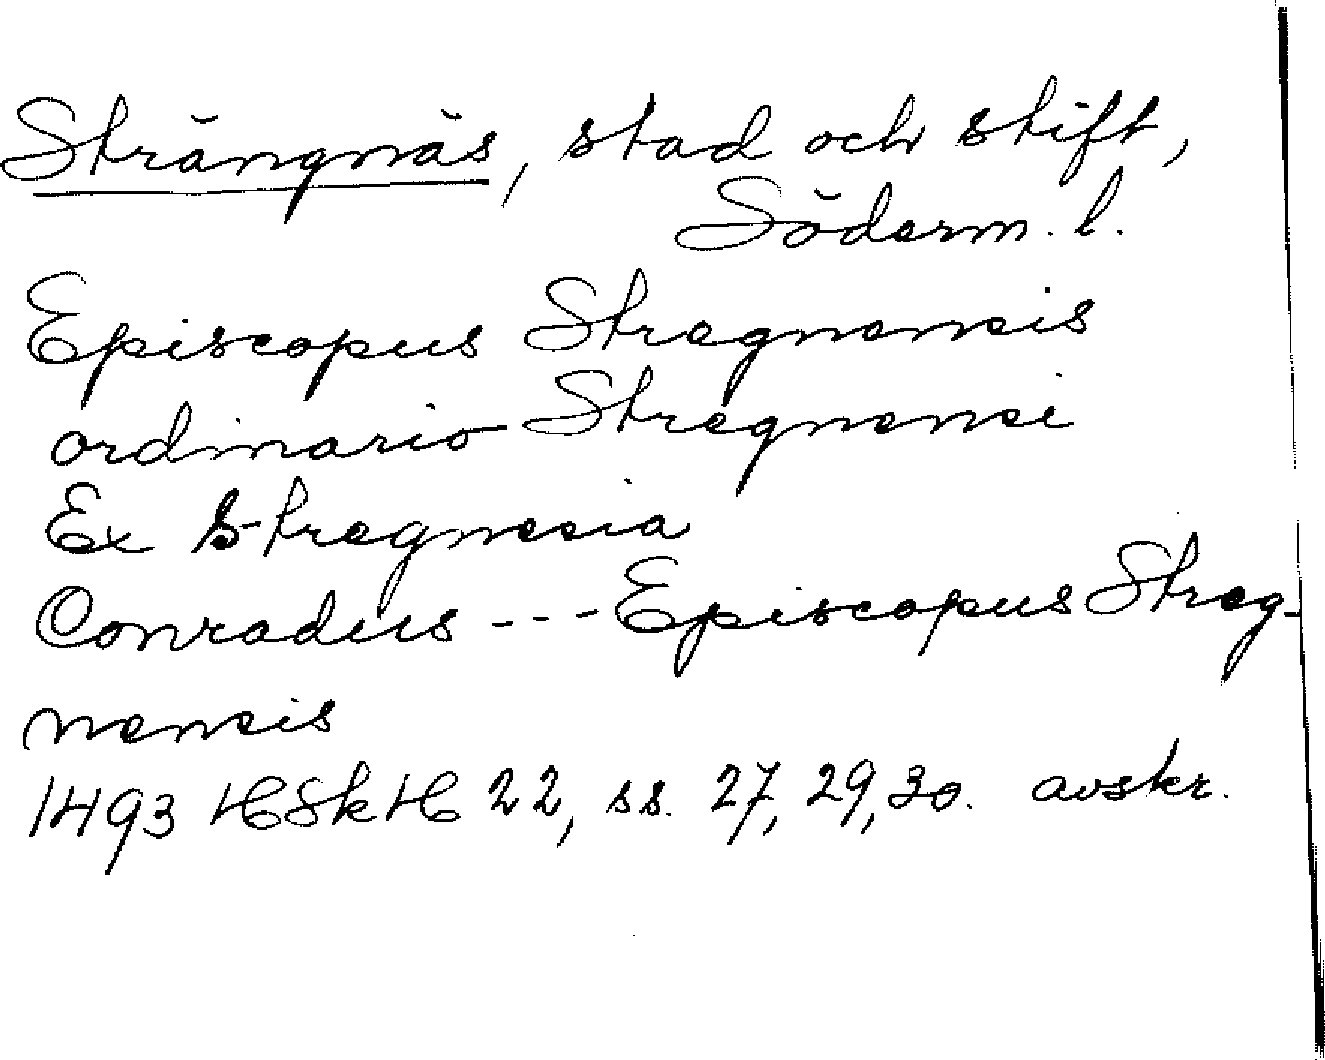 Strängnäs, stad och stift,
Söderm. l.
Episcopus Stregnensis
ordinario Stregnensi
Ex Stregnesia
Conradus --- Episcopus Streg-
nensis
1493 HSkH 22, ss. 27, 29, 30. avskr.